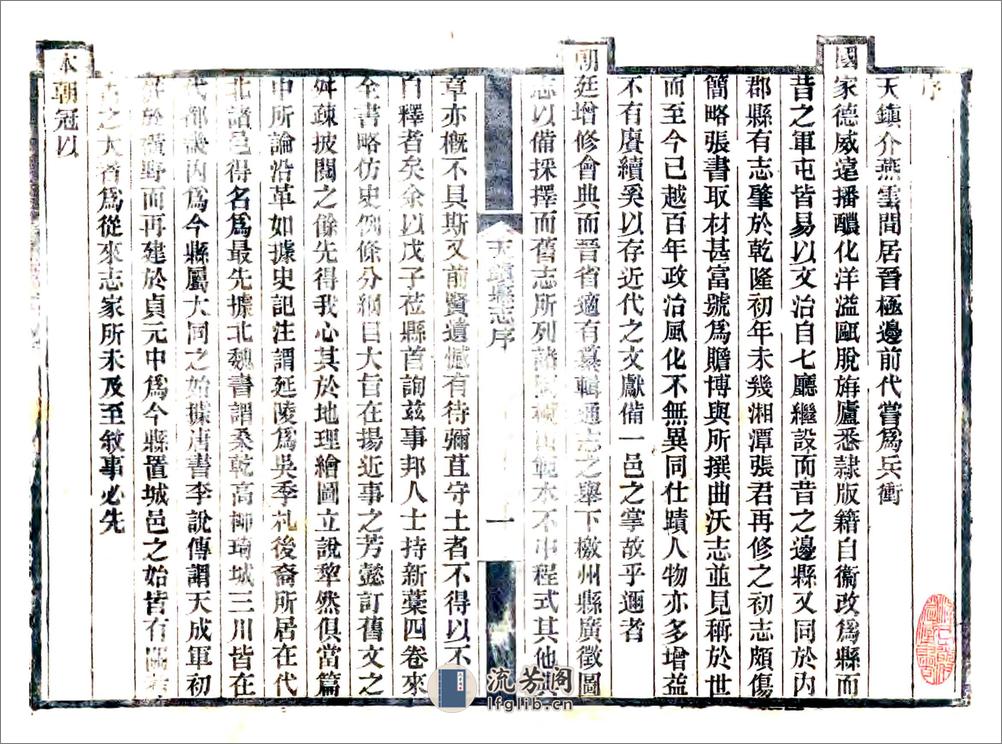 序
天鎮介燕雲間居晉極邊前代嘗爲兵衝
國家德威遠播醲化洋溢甌脫旃廬悉隷版籍自衞改爲縣而
昔之軍屯皆易以文治自七廳繼設而昔之邊縣又同於內
郡縣有志肇於乾隆初年未幾湘潭張君再修之初志頗傷
簡略張書取材甚富號爲贍博與所撰曲沃志並見稱於世
而至今已越百年政治風化不無異同仕蹟人物亦多增益
不有賡續奚以存近代之文獻備一邑之掌故乎邇者
朝廷增修會典而晉省適有纂輯通志之舉下檄州縣廣徵圖
志以備採擇而舊志所列諸圖範水不中程式其他
天鎮縣志序
一
章亦概不具斯又前賢遺憾有待彌苴守土者不得以不
自釋者矣余以戊子莅縣首詢兹事邦人士持新藁四卷來
全書略仿史例條分綱目大旨在揚近事之芳懿訂舊文之
舛疎披閱之餘先得我心其於地理繪圖立說犂然俱當篇
中所論沿革如據史記注謂延陵爲吳季札後裔所居在代
北諸邑得名爲最先據北魏書謂桑乾高柳琦城三川皆在
代都畿內爲今縣屬大同之始據唐書李說傳謂天成軍初
於曠野而再建於貞元中爲今縣置城邑之始皆有關
之大者爲從來志家所未及至敘事必先
本朝冠以
流芳閣
lfglib.cn